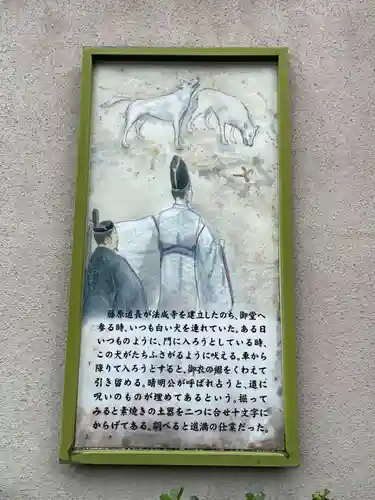 藤原道長が法成寺を建立したのち、御堂へ
参る時、いつも白い犬を連れていた。ある日
いつものように、門に入ろうとしている時、
この犬がたちふさがるように吠える。車から
降りて入ろうとすると、御衣の裾をくわえて
引き留める。晴明公が呼ばれ占うと、道に
呪いのものが埋めてあるという。掘って
みると素焼きの土器を二つに合せ十文字に
からげてある。調べると道満の仕業だった。